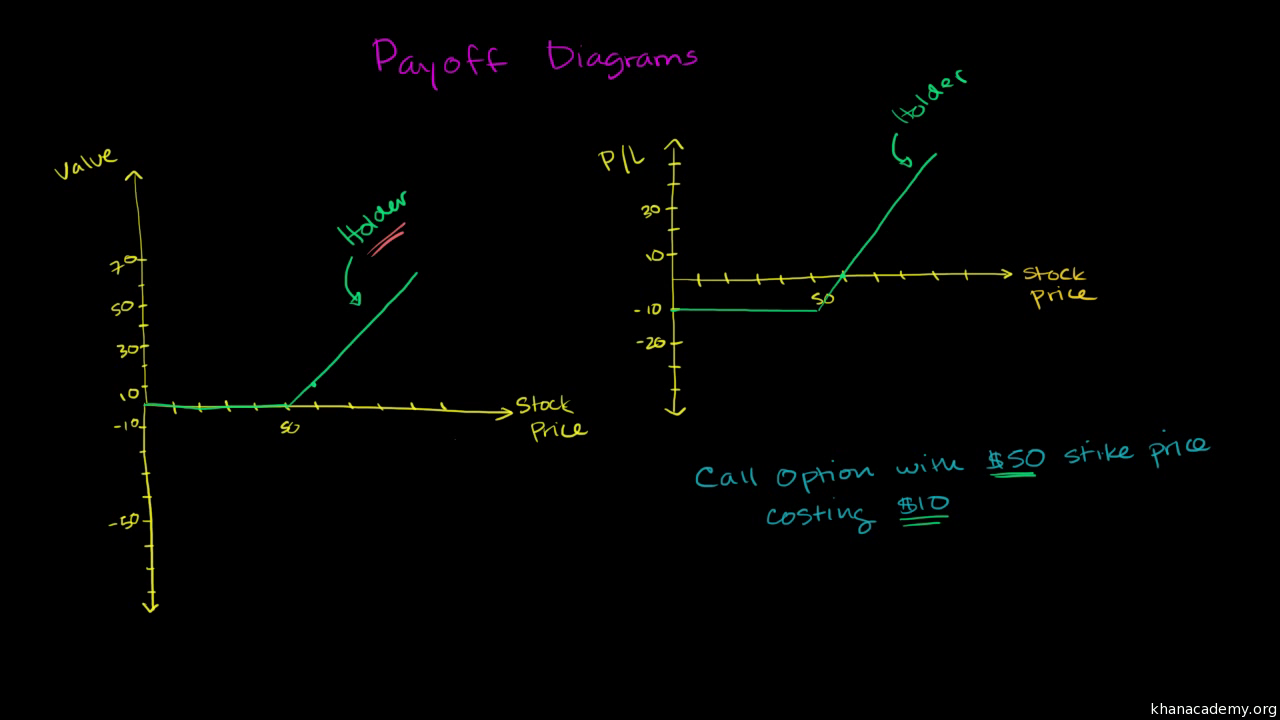 Payoff Diagrams
Value
Holder
70
50
30
10
-10
-50
50
Stock
Price
P/L
Holder
30
10
-10
-20
50
Stock
Price
Call Option with $50 stike price
costing $10
khanacademy.org